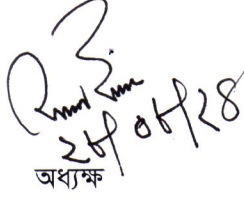 ২৮/০৮/২৪
অধ্যক্ষ